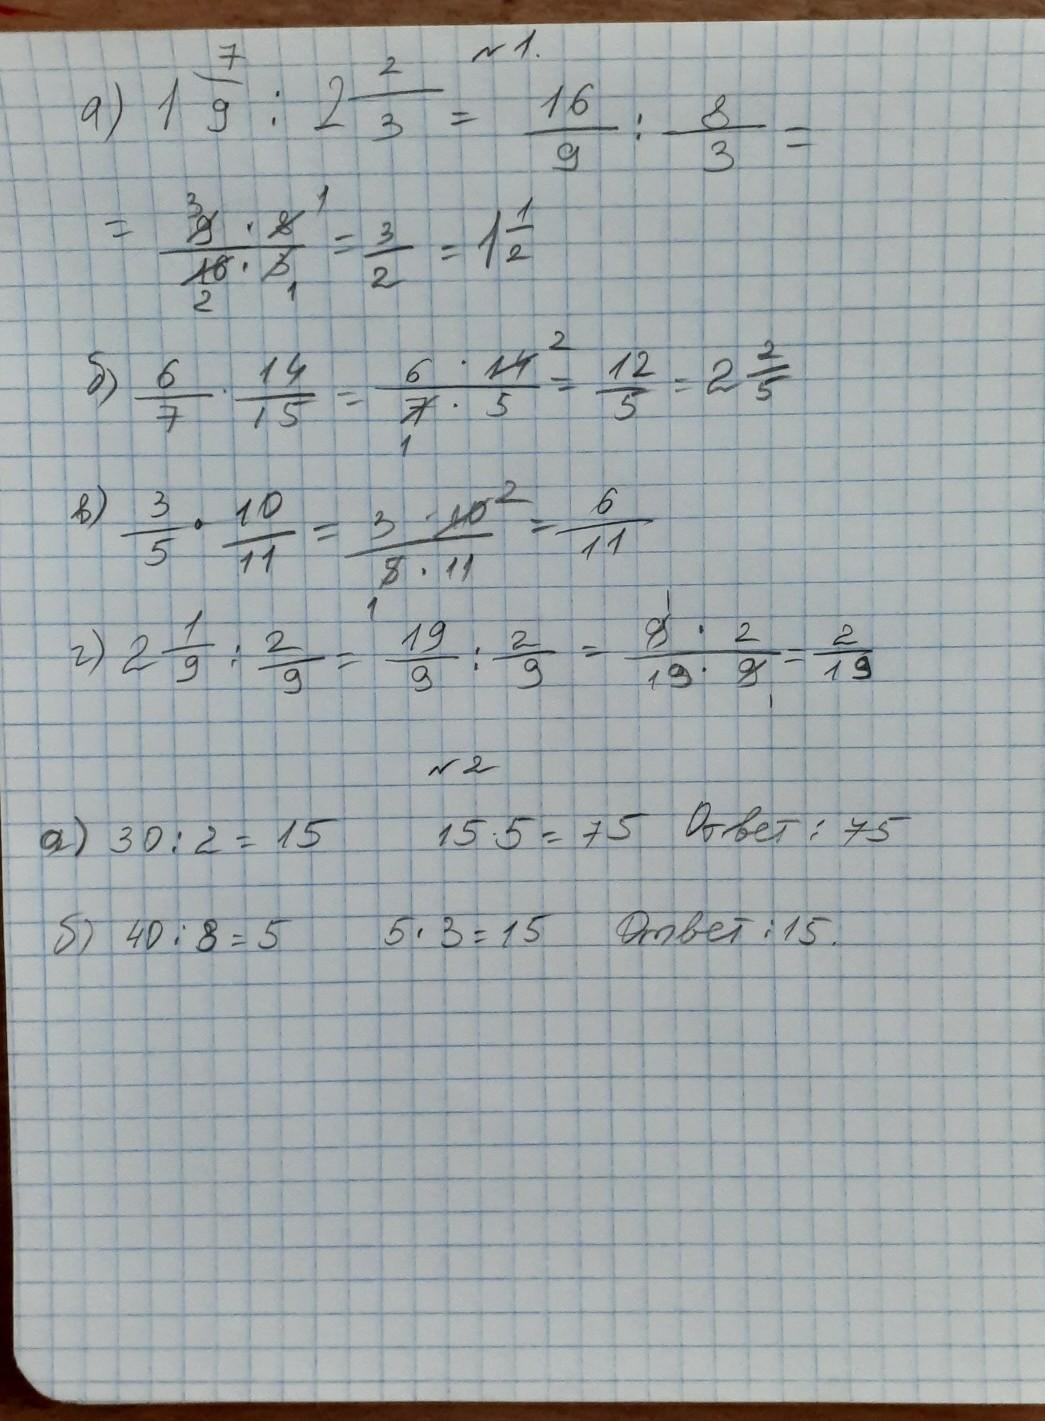 №1.
а) 1 7/9 : 2 2/3 = 16/9 : 8/3 =
= 9 · 8 / 16 · 3 = 3/2 = 1 1/2
б) 6/7 · 14/15 = 6 · 14 / 7 · 5 = 12/5 = 2 2/5
в) 3/5 · 10/11 = 3 · 10 / 5 · 11 = 6/11
г) 2 1/9 : 2/9 = 19/9 : 2/9 = 9 · 2 / 19 · 9 = 2/19
№2
а) 30 : 2 = 15 15 · 5 = 75 Ответ : 75
б) 40 : 8 = 5 5 · 3 = 15 Ответ : 15.